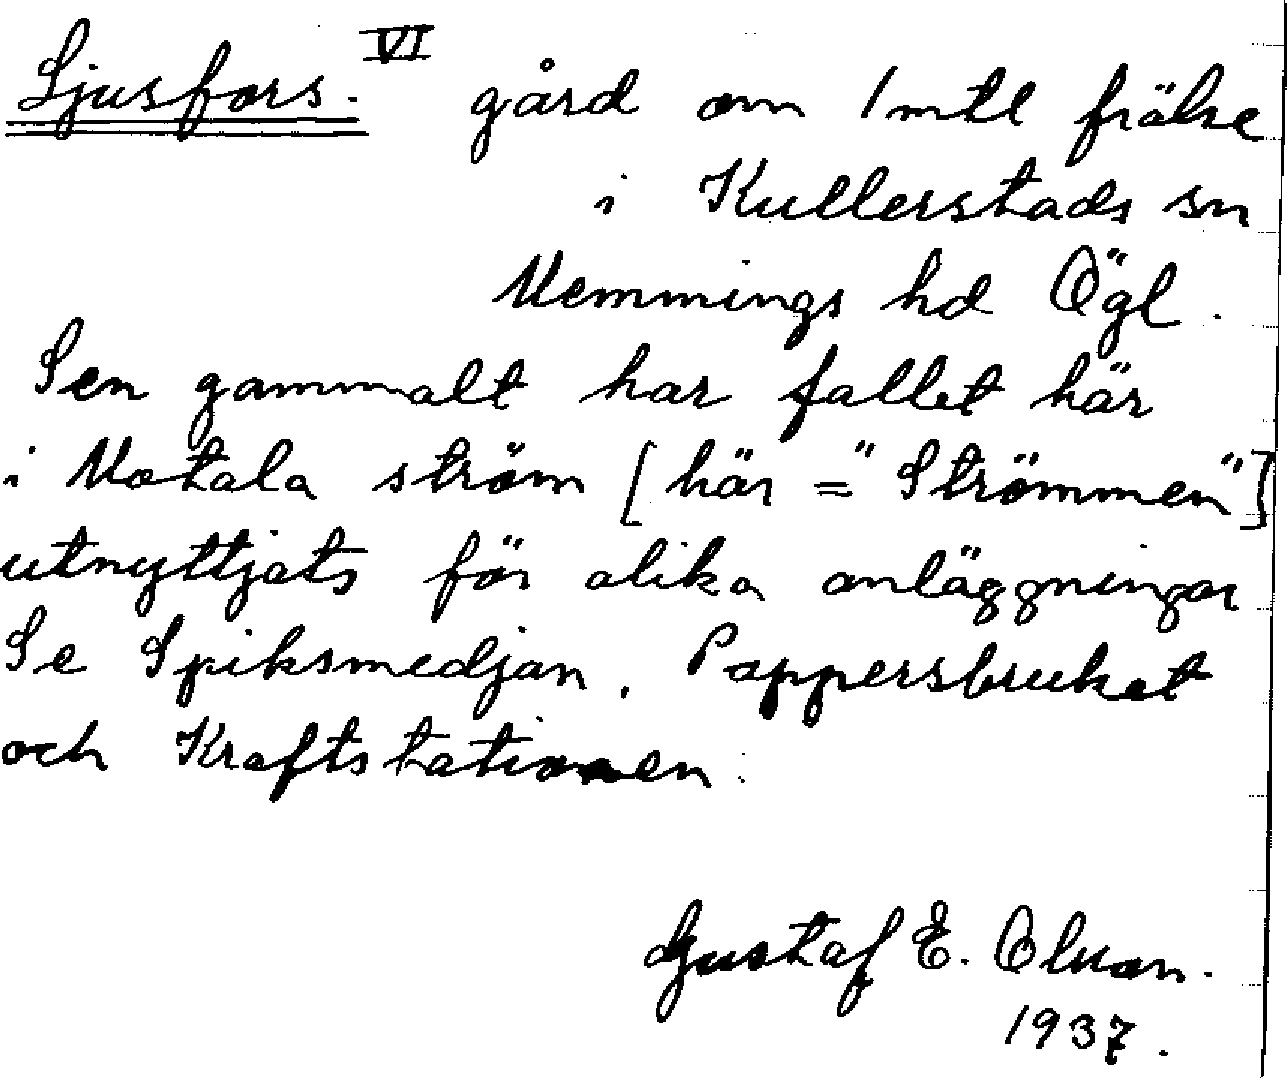 Ljusfors. VI gård om 1 mtl frälse
i Kullerstads sn
Memmings hd Ögl.
Sen gammalt har fallet här
i Motala ström [här = "Strömmen"]
utnyttjats för olika anläggningar
Se Spiksmedjan, Pappersbruket
och Kraftstationen.
Gustaf E. Olsson.
1937.